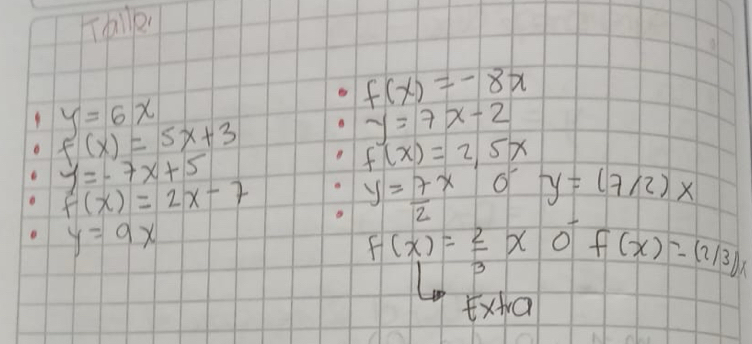 Taller
• y = 6x
• f(x) = 5x+3
• y = -7x+5
• f(x) = 2x-7
• y = 9x
• f(x) = - 8x
• y = 7x-2
• f(x) = 2,5x
• y = 7/2 x ó y = (7/2)x
• f(x) = 2/3 x ó f(x) = (2/3)x
Extra